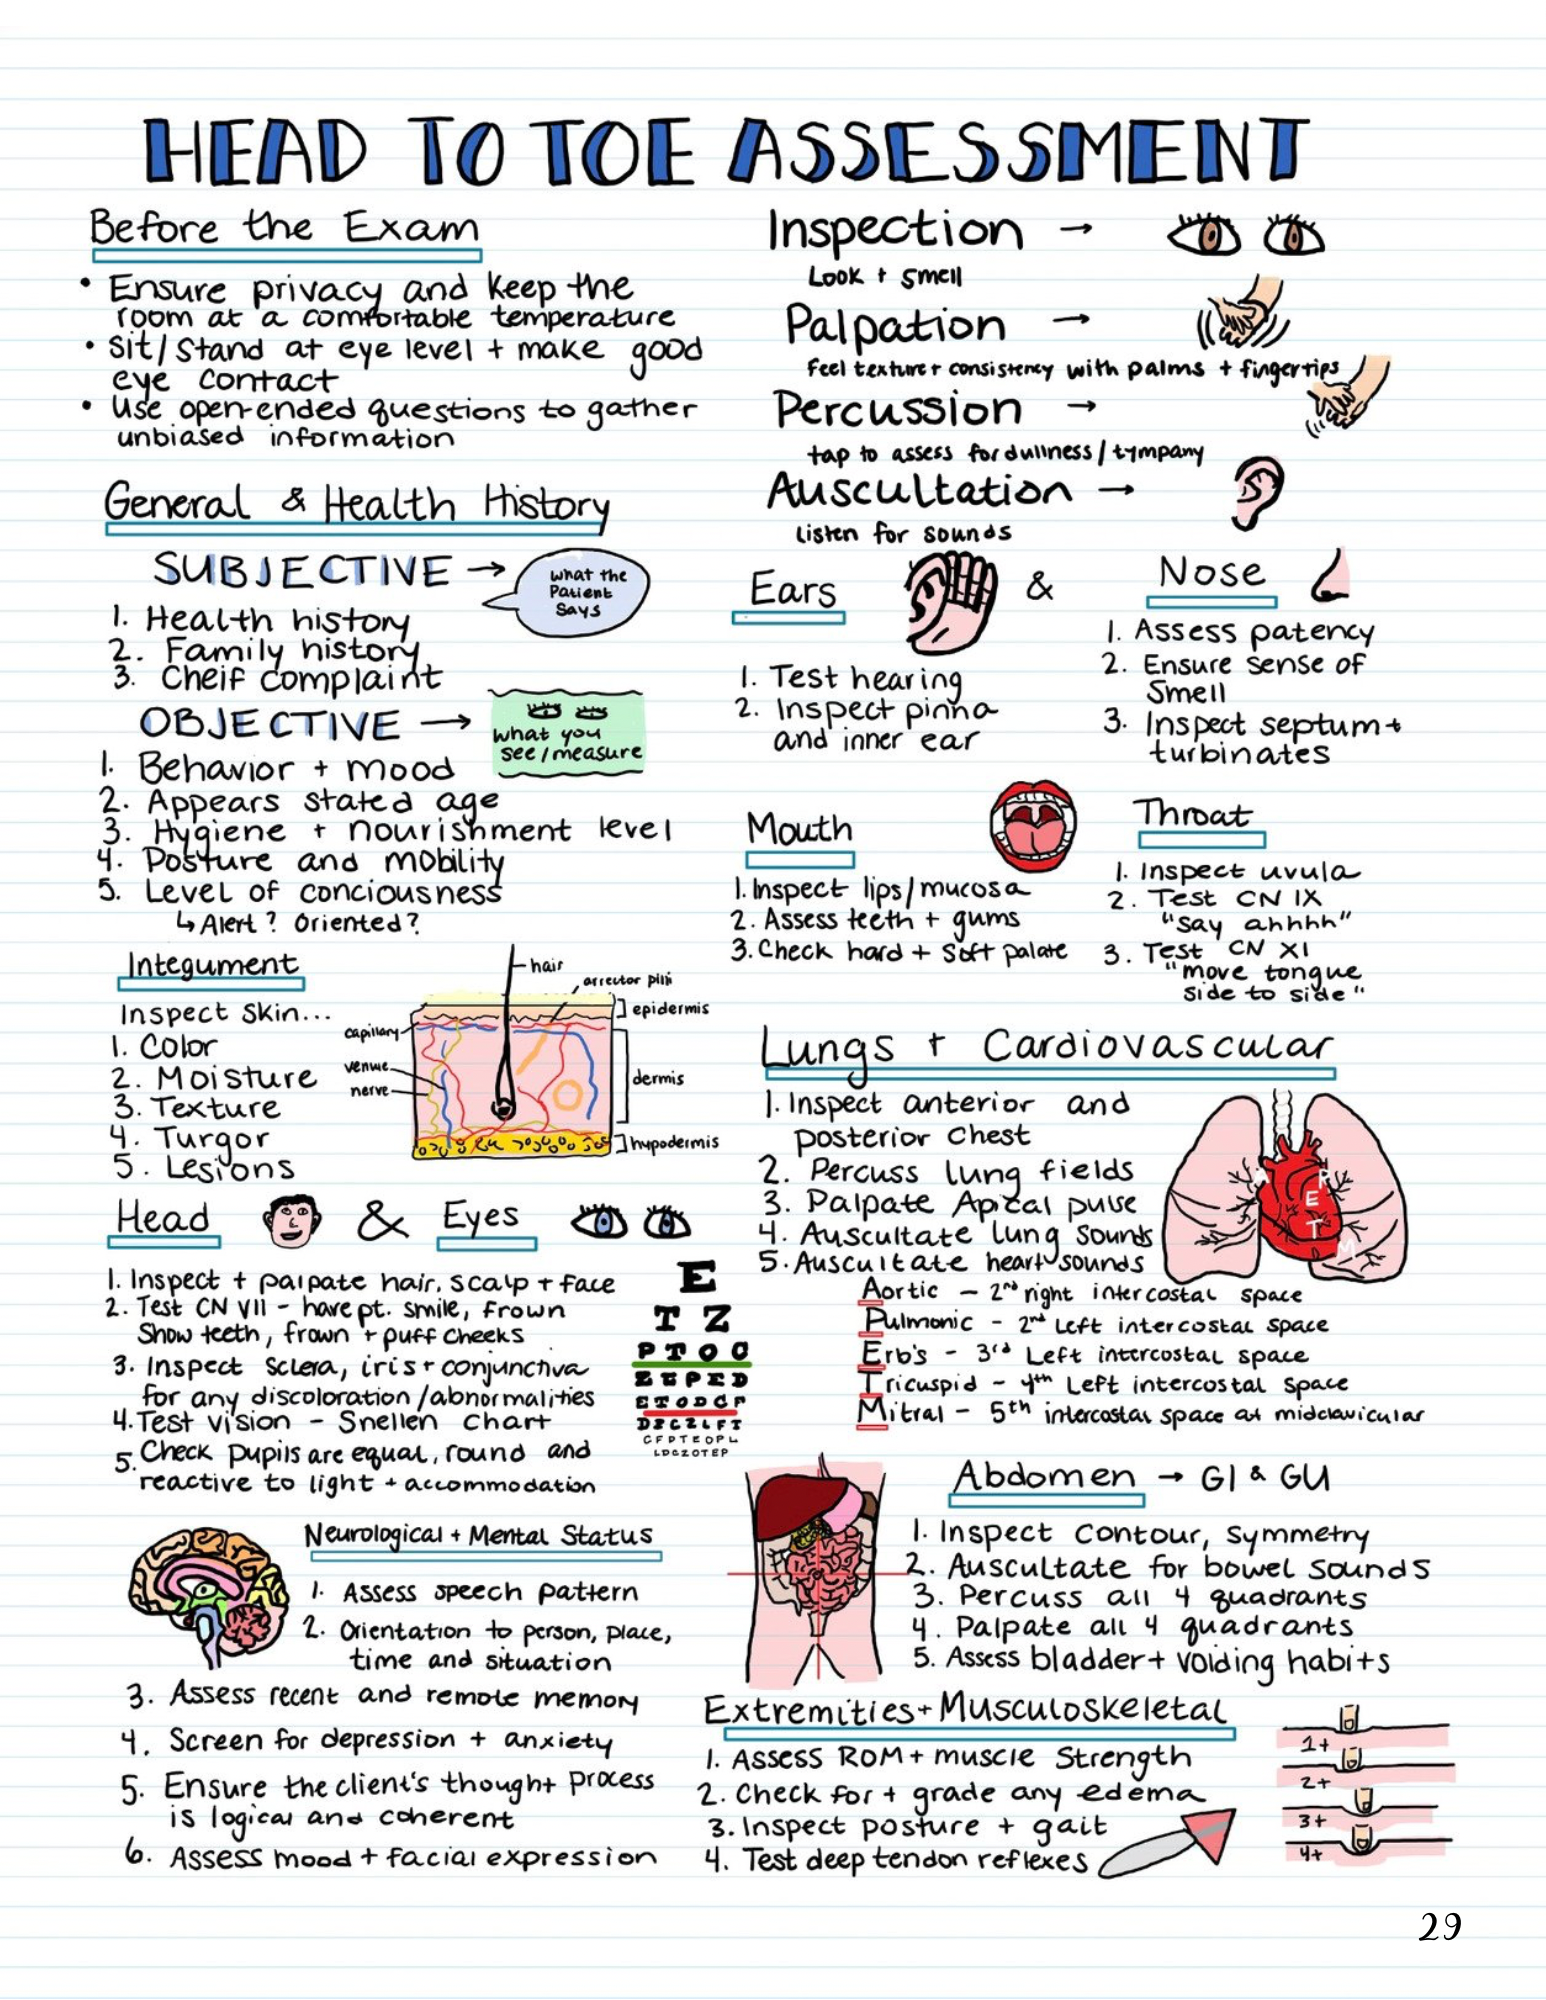 HEAD TO TOE ASSESSMENT
Before the Exam
• Ensure privacy and keep the
room at a comfortable temperature
• Sit/Stand at eye level + make good
eye contact
• Use open-ended questions to gather
unbiased information
General & Health History
SUBJECTIVE →
what the
Patient
Says
1. Health history
2. Family history
3. Cheif complaint
OBJECTIVE →
what you
see/measure
1. Behavior + mood
2. Appears stated age
3. Hygiene + nourishment level
4. Posture and mobility
5. Level of conciousness
↳ Alert? Oriented?
Integument
Inspect Skin...
1. Color
2. Moisture
3. Texture
4. Turgor
5. Lesions
hair
arrector pili
epidermis
capillary
venue
nerve
dermis
hypodermis
Head & Eyes
1. Inspect + palpate hair, scalp + face
2. Test CN VII - have pt. smile, frown
Show teeth, frown + puff cheeks
3. Inspect Sclera, iris + conjunctiva
for any discoloration/abnormalities
4. Test vision - Snellen Chart
5. Check pupils are equal, round and
reactive to light + accommodation
E
T Z
P T O C
Z E P E D
E T O D C F
D P C Z L F T
C F D T E O P L
L D C Z O T E P
Neurological + Mental Status
1. Assess speech pattern
2. Orientation to person, place,
time and situation
3. Assess recent and remote memory
4. Screen for depression + anxiety
5. Ensure the client's thought process
is logical and coherent
6. Assess mood + facial expression
Inspection →
Look + Smell
Palpation →
Feel texture + consistency with palms + fingertips
Percussion →
tap to assess for dullness/tympany
Auscultation →
listen for sounds
Ears &
1. Test hearing
2. Inspect pinna
and inner ear
Nose
1. Assess patency
2. Ensure sense of
Smell
3. Inspect septum +
turbinates
Mouth
1. Inspect lips/mucosa
2. Assess teeth + gums
3. Check hard + Soft palate
Throat
1. Inspect uvula
2. Test CN IX
"Say ahhhh"
3. Test CN XI
"move tongue
side to side"
Lungs + Cardiovascular
1. Inspect anterior and
posterior Chest
2. Percuss lung fields
3. Palpate Apical pulse
4. Auscultate lung Sounds
5. Auscultate heart sounds
A
P
E
T
M
Aortic - 2nd right intercostal space
Pulmonic - 2nd Left intercostal space
Erb's - 3rd Left intercostal space
Tricuspid - 4th Left intercostal space
Mitral - 5th intercostal space at midclavicular
Abdomen → GI & GU
1. Inspect Contour, Symmetry
2. Auscultate for bowel Sounds
3. Percuss all 4 quadrants
4. Palpate all 4 quadrants
5. Assess bladder + voiding habits
Extremities + Musculoskeletal
1. Assess ROM + muscle Strength
2. Check for + grade any edema
3. Inspect posture + gait
4. Test deep tendon reflexes
1+
2+
3+
4+
29